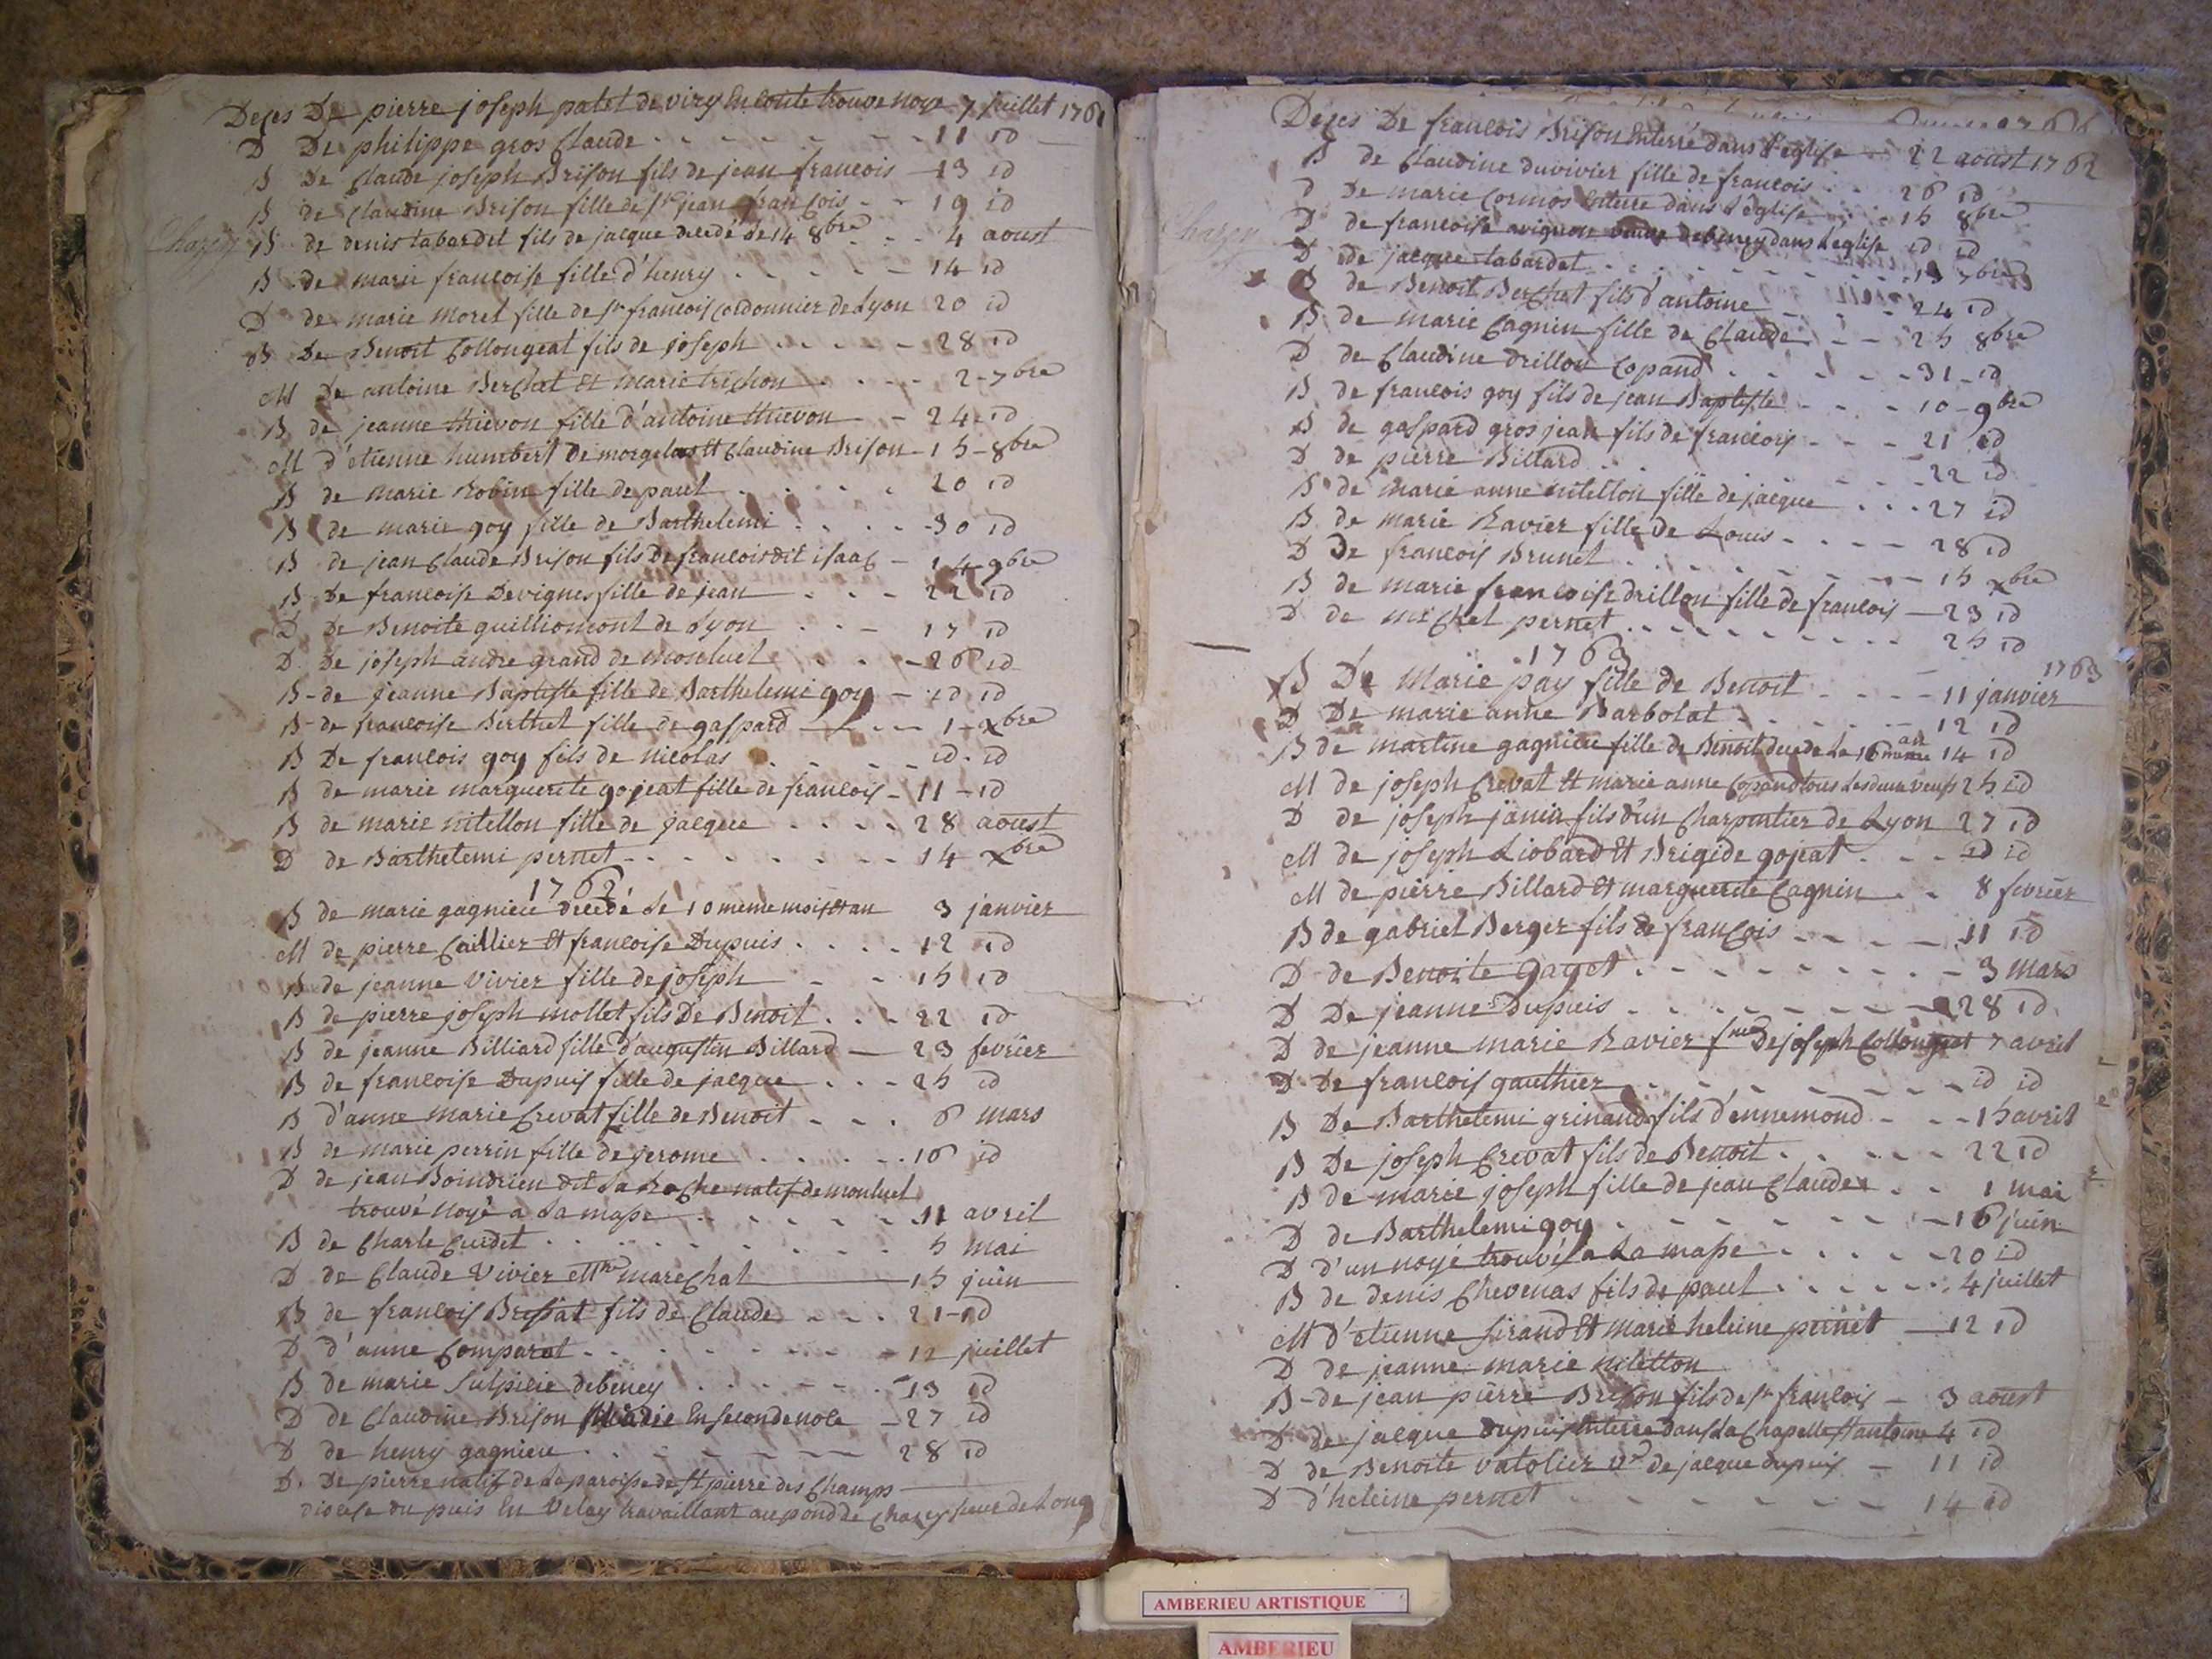 Deces De pierre joseph patel de viry En conte trouve noye 7 juillet 1761
D De philippe gros Claude - - - 11 id
B De Claude joseph Brison fils de jean francois 13 id
B de Claudine Brison fille de sr jean francois - - 19 id
Chazey B de denis tabardet fils de jacque decedé le 14 8bre - - 4 aoust
B de marie francoise fille d'henry - - - 14 id
D de marie moret fille de sr francois Cordonnier de Lyon 20 id
B De Benoit Collongeat fils de joseph - - - 28 id
M De antoine Berchat Et Marie trichon - - - 2 - 7bre
B de jeanne thievon fille d'antoine thievon - 24 id
M d'etienne humbert de morgelas Et Claudine Brison - 15 - 8bre
B de marie Robin fille de paul - - - 20 id
B de marie goy fille de Barthelemi - - - 30 id
B de jean Claude Brison fils De francois dit isaac - 14 9bre
B De francoise Devignes fille de jean - - - 22 id
D De Benoite guilliomont de Lyon - - - 17 id
D De joseph andre grand de moncluel - - - 26 id
B - de jeanne Baptiste fille de Barthelemi goy - id id
B - de francoise Berthet fille de gaspard - - - 1 - xbre
B De francois goy fils de nicolas - - - id. id
B de marie marguerite gojeat fille de francois - 11 - id
B de marie nitellon fille de jacque - - - 28 aoust
D de Barthelemi pernet - - - 14 xbre
1762
B de marie gagnieu decedé le 10 meme mois et an 3 janvier
M de pierre Caillier Et francoise Dupuis - - - 12 id
B de jeanne Vivier fille de joseph - - 15 id
B de pierre joseph mollet fils De Benoit - - - 22 id
B de jeanne Billiard fille d'augustin Billard - 23 fevrier
B de francoise Dupuis fille de jacque - - - 25 id
B d'anne marie Crevat fille de Benoit - - - 6 mars
B de marie perrin fille de jerome - - - 16 id
D de jean Boindrieu dit La Roche natif de montluel
trouvé noyé a La mape - - - 11 avril
B de Charle Cuidet - - - 5 mai
D de Claude Vivier Mtre mareChal 15 juin
B de francois Bressat fils de Claude - - - 21 - id
D d'anne Comparat - - - 12 juillet
B de marie Sulpicie debeney - - - 13 id
D de Claudine Brison mariée En seconde noce - 27 id
D de henry gagnieu - - - 28 id
D. De pierre natif de La paroisse de St pierre des Champs
diocese du puis En Velay travaillant au pond de Chazey sieur de Long
Deces De francois Brison Enterré dans l'eglise - 22 aoust 1762
B de Claudine duvivier fille de francois - - 26 id
D De marie Cormos Enterre dans L'eglise - - 15 8bre
D de francoise avignon veuve debeney dans L'eglise id id
Chazey D de jacque tabardet - - - 13 7bre
B de Benoit Berchet fils d'antoine - - - 24 id
B de marie Cagnin fille de Claude - - 25 8bre
D de Claudine drillon Copand - - - 31 - id
B de francois goy fils de jean Baptiste - - - 10 - 9bre
B de gaspard gros jean fils de francois - - - 21 id
D de pierre Billard - - - 22 id
B de marie anne nitellon fille de jacque - - - 27 id
B de marie Ravier fille De Louis - - - 28 id
D De francois Brunet - - - 15 xbre
B de marie francoise drillon fille de francois - 23 id
D de michel pernet - - - 25 id
1763
B De Marie pay fille de Benoit - - - 11 janvier 1763
D De marie anne Barbolat - - - 12 id
B de martine gagnieu fille de Benoit decede Le 16 meme an 14 id
M de joseph Crevat Et marie anne Copand tous Les deux veufs 25 id
D de joseph janin fils d'un Charpentier de Lyon 27 id
M de joseph Liobard Et Brigide gojeat - - - id id
M de pierre Billard Et marguerite Cagnin - - 8 fevrier
B de gabriel Berger fils de francois - - - 11 id
D de Benoite gayet - - - 3 mars
D De jeanne Dupuis - - - 28 id
D de jeanne marie Ravier fme De joseph Collongeat 7 avril
D De francois gauthier - - - id id
B De Barthelemi grinand fils d'ennemond - - - 15 avril
B De joseph Crevat fils de Benoit - - - 22 id
B de marie joseph fille de jean Claude - - 1 mai
D de Barthelemi goy - - - 16 juin
D d'un noyé trouvé a La mape - - - 20 id
B de denis Chevenas fils de paul - - - 4 juillet
M d'etienne sirand Et marie heleine pernet - 12 id
D de jeanne marie nitellon
B - de jean pierre Brison fils de sr francois - 3 aoust
D de jacque dupuis Enterre dans La Chapelle St antoine 4 id
D de Benoite vatolier Ve de jacque dupuis - 11 id
D d'heleine pernet - - - 14 id
AMBERIEU ARTISTIQUE
AMBERIEU